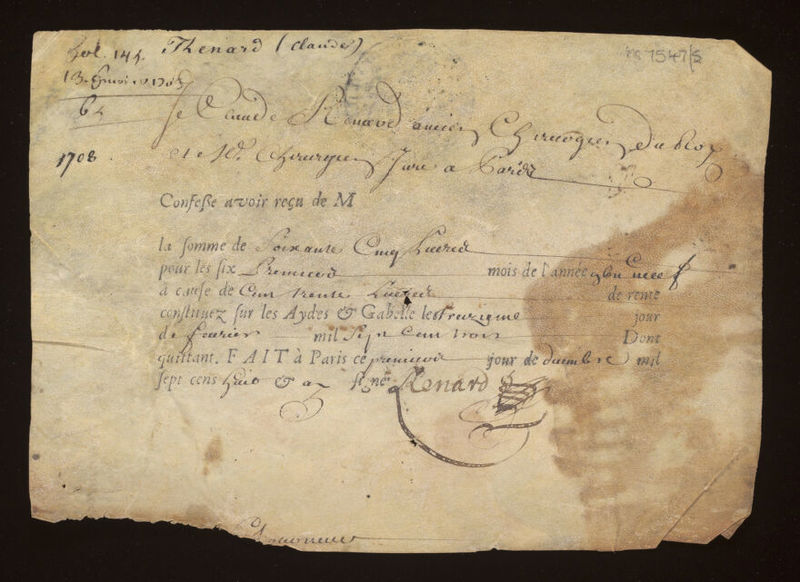 Vol. 144. Renard (Claude)
MS 7547/5
13 fevrier 1703
65
Je Claude Renard ancien Chirurgien du Roy
1708
et Me. Chirurgien Juré a Paris
Confesse avoir reçu de M
la somme de Soixante Cinq Livres
pour les six Premiers mois de l'année
à cause de Cent trente Livres de rente
constituez sur les Aydes & Gabelle les treizieme jour
de feurier mil Sept Cent trois Dont
quittant. FAIT à Paris ce premier jour de decembre mil
sept cens huit & a signé
Renard